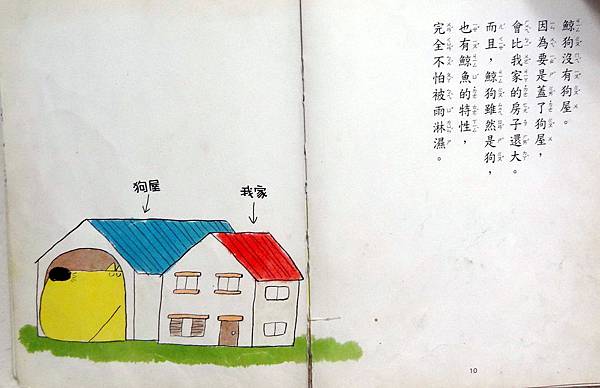 鯨狗沒有狗屋。
因為要是蓋了狗屋，
會比我家的房子還大。
而且，鯨狗雖然是狗，
也有鯨魚的特性，
完全不怕被雨淋濕。
我家
狗屋
10